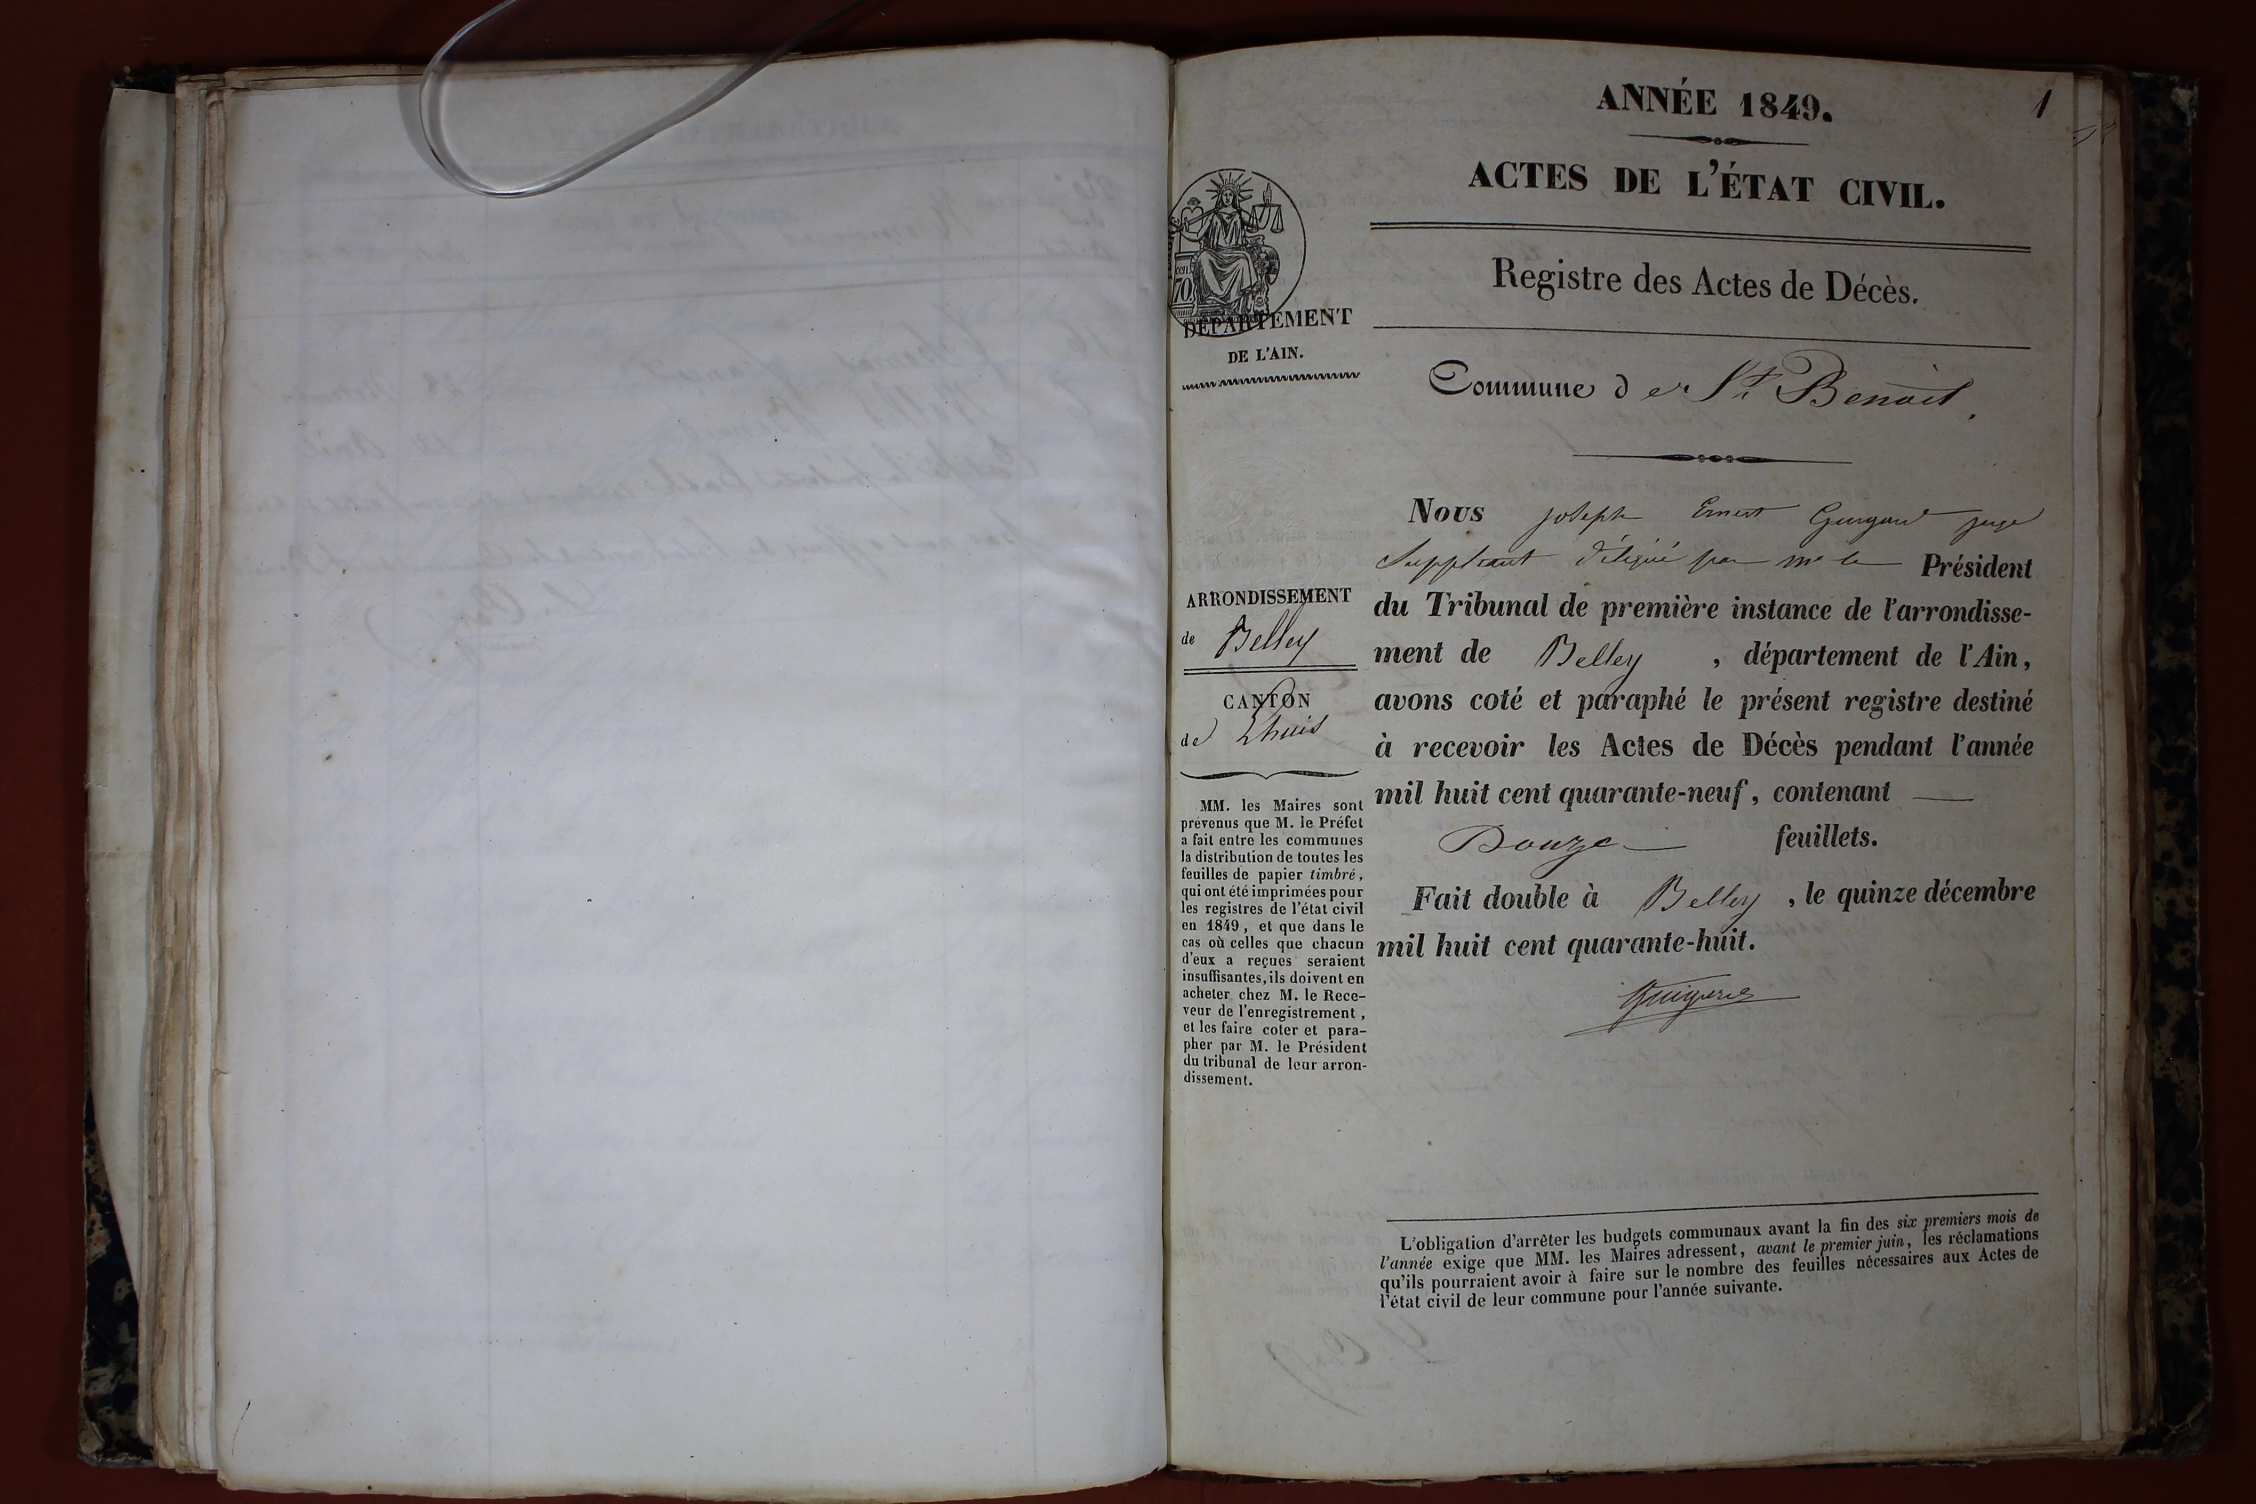 ANNÉE 1849.
1
ACTES DE L'ÉTAT CIVIL.
Registre des Actes de Décès.
cen
70
DÉPARTEMENT
DE L'AIN.
Commune de St Benoit.
Nous joseph Ernest juge
Suppléant délégué par mr le Président
du Tribunal de première instance de l'arrondisse-
ment de Belley, département de l'Ain,
avons coté et paraphé le présent registre destiné
à recevoir les Actes de Décès pendant l'année
mil huit cent quarante-neuf, contenant —
Douze — feuillets.
Fait double à Belley, le quinze décembre
mil huit cent quarante-huit.
ARRONDISSEMENT
de Belley
CANTON
de Lhuis
MM. les Maires sont
prévenus que M. le Préfet
a fait entre les communes
la distribution de toutes les
feuilles de papier timbré,
qui ont été imprimées pour
les registres de l'état civil
en 1849, et que dans le
cas où celles que chacun
d'eux a reçues seraient
insuffisantes, ils doivent en
acheter chez M. le Rece-
veur de l'enregistrement,
et les faire coter et para-
pher par M. le Président
du tribunal de leur arron-
dissement.
L'obligation d'arrêter les budgets communaux avant la fin des six premiers mois de
l'année exige que MM. les Maires adressent, avant le premier juin, les réclamations
qu'ils pourraient avoir à faire sur le nombre des feuilles nécessaires aux Actes de
l'état civil de leur commune pour l'année suivante.